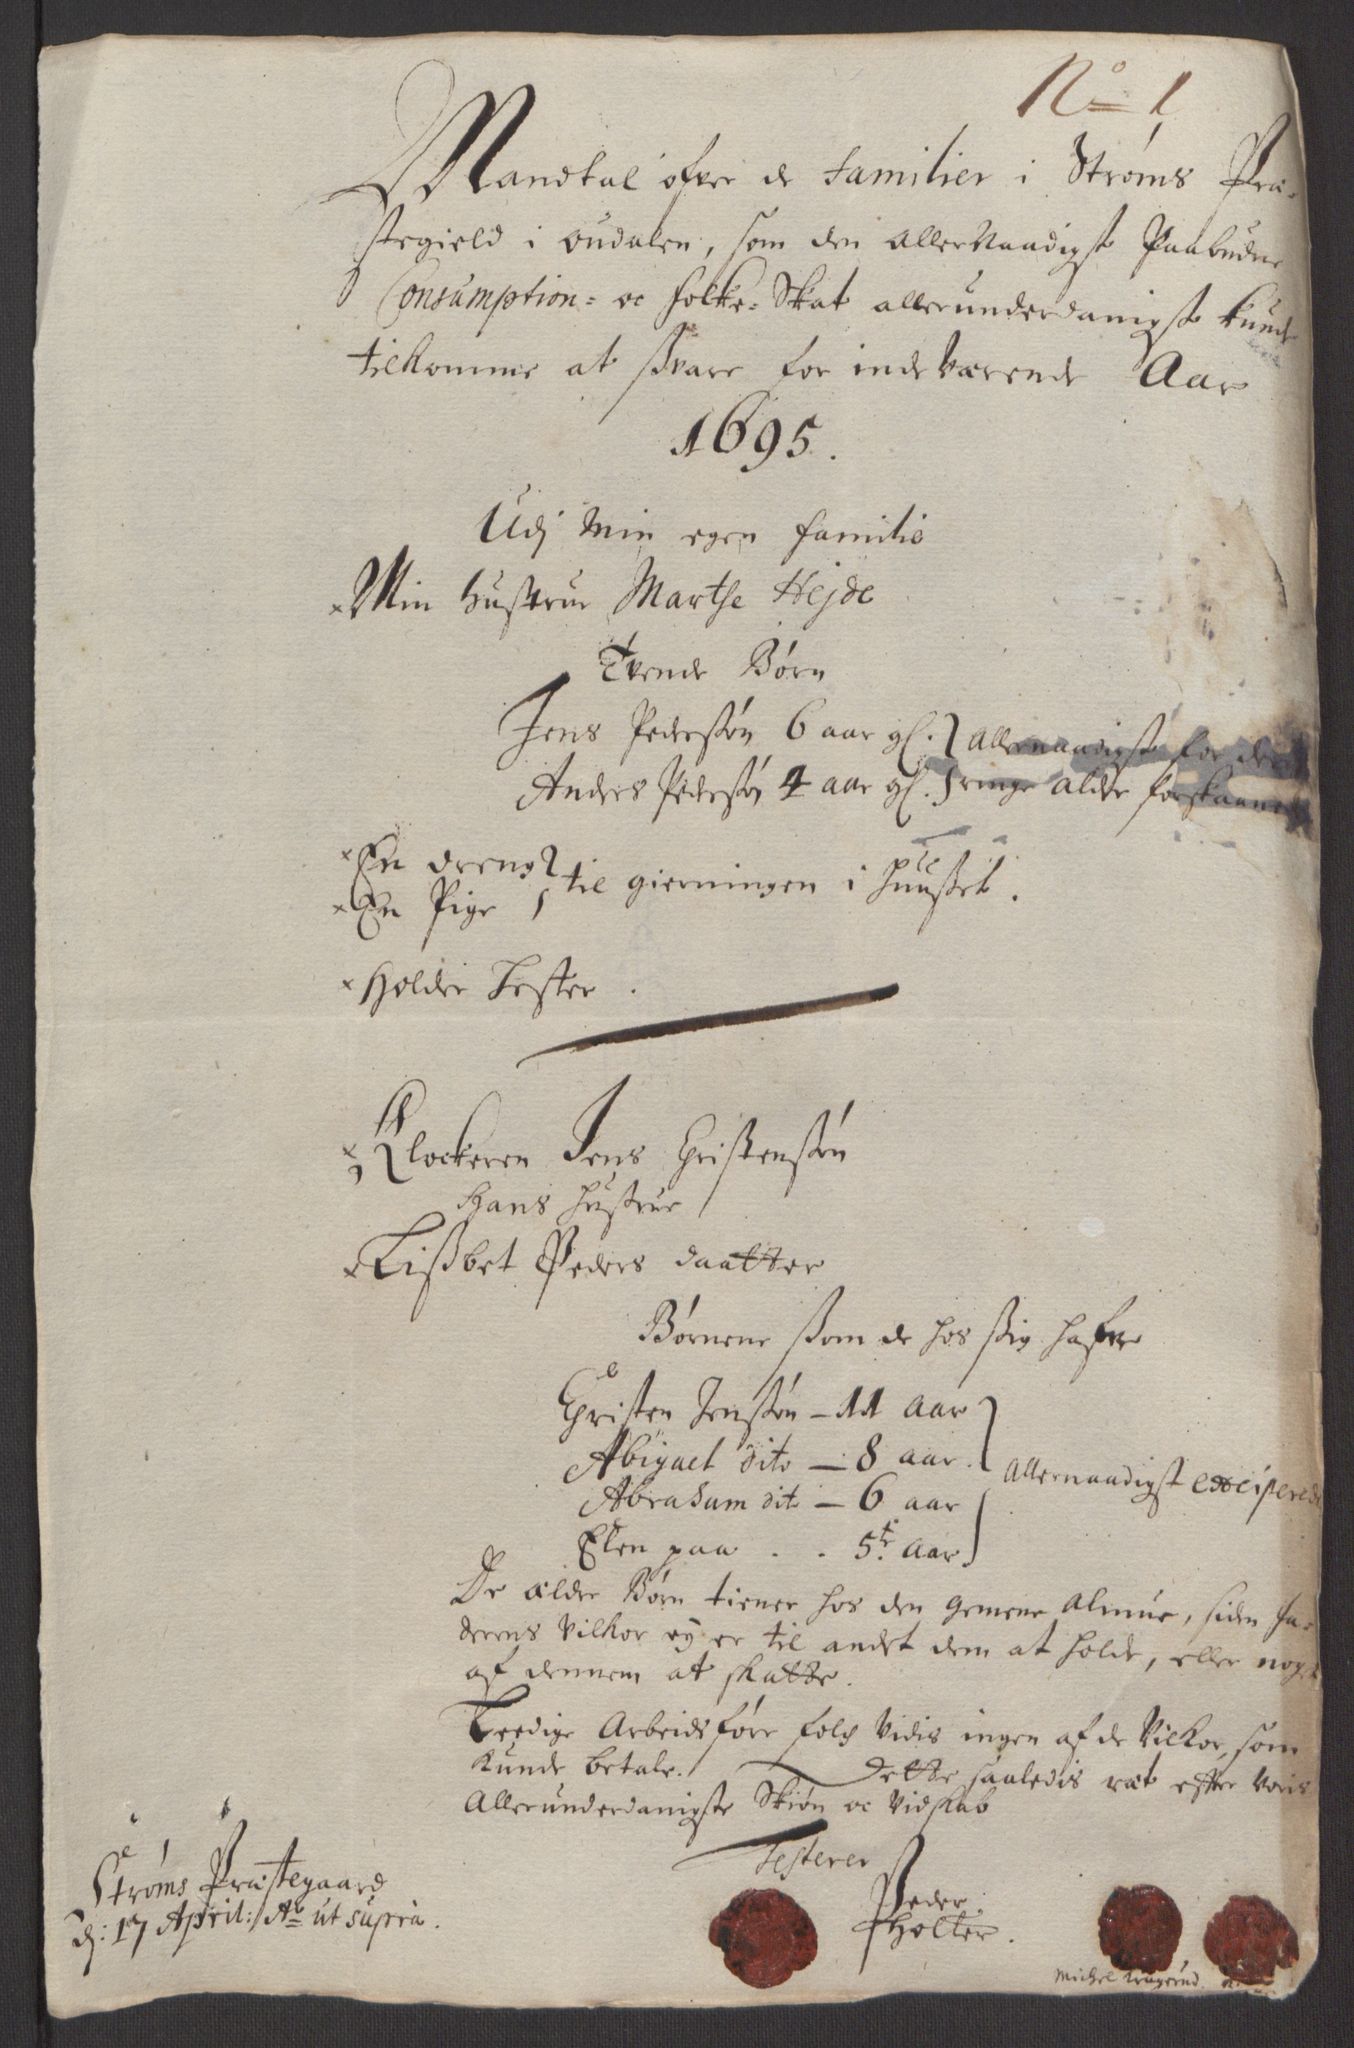 No 1
Mandtal ofver de familier i Strøms Præ-
stegield i oudalen, som den allernaadigst Paabudne
Consumption= oc folke=Skat allerunderdanigst kunde
tilkomme at sware for indeværende Aar
1695.
Udj Min egen familie
Min hustrue Marthe Hejde
Tvende Børn
Jens Pedersøn 6 aar gl. } allernaadigst for deris
Anders Pedersøn 4 aar gl. } ringe alder forskaanet
En dreng }
En Pige } til gierningen i huuset.
Holder hester.
Klockeren Jens Christensøn
Hans hustrue
Lisbet Peders daatter
Børnene som de hos sig hafver
Christen Jensøn – 11 aar
Abigael dito — 8 aar. } allernaadigst exciperede
Abraham dito – 6 aar
Elen paa . . 5te aar
De ælder Børn tiener hos den gemene almue, siden fa-
derens Vilkor ey er til andet dem at holde, eller noget
af dennem at skatte.
Leedige Arbeidsføre folch vidis ingen af de Vilkor, som
kunde betale. Dette saaledis ræt efter voris
Allerunderdanigste Skiøn oc Vidskab
Testerer
Strøms Præstegaard
dj: 17 April: Ao ut supra.
Peder
Holter.
Michel